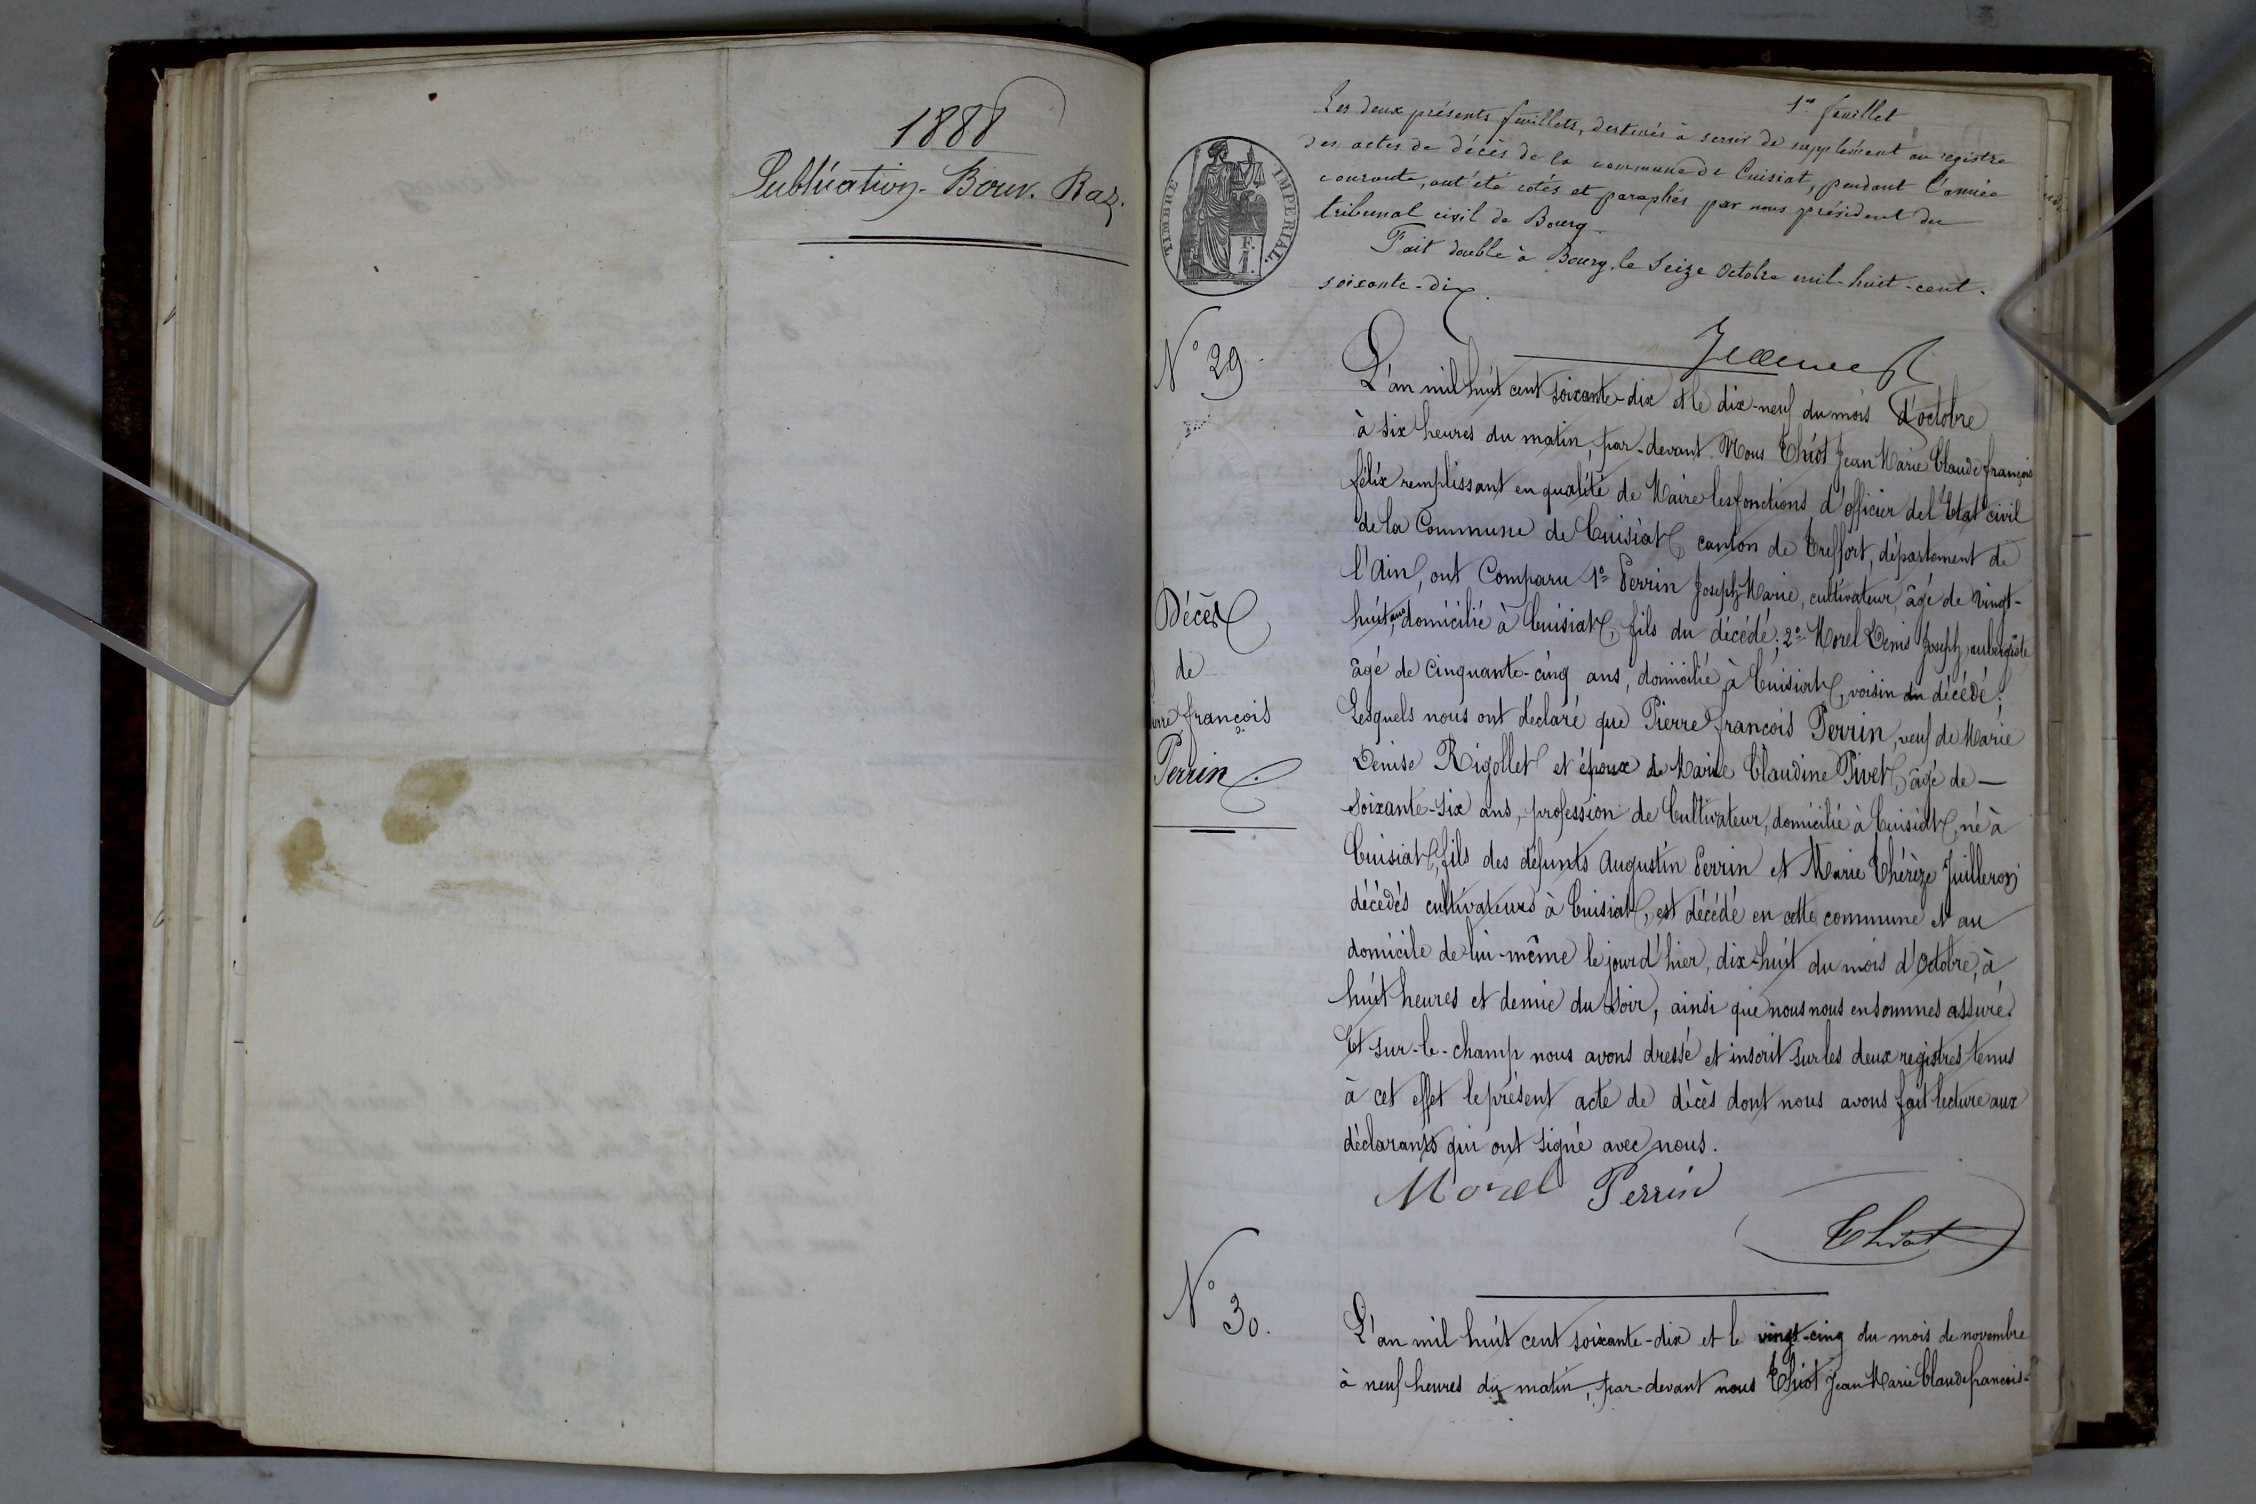 1888
Publication - Bouv. Raz.
1er feuillet
Les deux présents feuillets, destinés à servir de supplément au registre
des actes de décès de la commune de Cuisiat, pendant l'année
courante, ont été cotés et paraphés par nous président du
tribunal civil de Bourg.
Fait double à Bourg, le seize octobre mil-huit-cent-
soixante-dix.
TIMBRE IMPÉRIAL.
F.
1.
N° 29.
L'an mil huit cent soixante-dix et le dix-neuf du mois d'octobre
à six heures du matin, par-devant Nous Thiot Jean Marie Claude françois
félix remplissant en qualité de Maire les fonctions d'officier de l'Etat civil
de la Commune de Cuisiat, canton de Treffort, département de
l'Ain, ont Comparu 1° Perrin Joseph Marie, cultivateur, âgé de vingt-
huit ans, domicilié à Cuisiat, fils du décédé; 2° Morel Denis Joseph, aubergiste
âgé de cinquante-cinq ans, domicilié à Cuisiat, voisin du décédé;
Lesquels nous ont déclaré que Pierre françois Perrin, veuf de Marie
Denise Rigollet et époux de Marie Claudine Pivet, âgé de —
soixante-six ans, profession de Cultivateur, domicilié à Cuisiat, né à
Cuisiat, fils des défunts Augustin Perrin et Marie Thérèze Juilleron
décédés cultivateurs à Cuisiat, est décédé en cette commune et au
domicile de lui-même le jour d'hier, dix-huit du mois d'Octobre, à
huit heures et demie du soir, ainsi que nous nous en sommes assuré.
Et sur-le-champ nous avons dressé et inscrit sur les deux registres tenus
à cet effet le présent acte de décès dont nous avons fait lecture aux
déclarants qui ont signé avec nous.
Décès
de
françois
Perrin
Morel Perrin
Thiot
N° 30.
L'an mil huit cent soixante-dix et le vingt-cinq du mois de novembre
à neuf heures du matin, par-devant nous Thiot Jean Marie Claude françois-